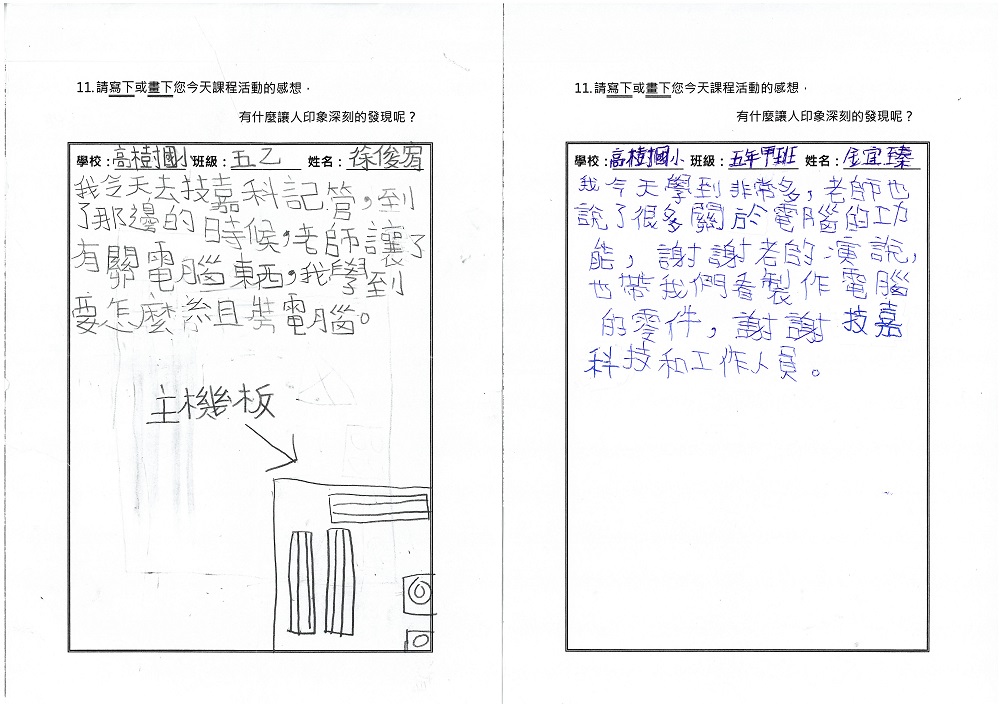 11.請寫下或畫下您今天課程活動的感想，
有什麼讓人印象深刻的發現呢？
學校：高樹國小 班級：五乙 姓名：徐俊宥
我今天去技嘉科記管，到
了那邊的時候，老師讓了
有關電腦東西，我學到
要怎麼組裝電腦。
主機板
11.請寫下或畫下您今天課程活動的感想，
有什麼讓人印象深刻的發現呢？
學校：高樹國小 班級：五年甲班 姓名：金宜臻
我今天學到非常多，老師也
說了很多關於電腦的功
能，謝謝老的演說，
也帶我們看製作電腦
的零件，謝謝技嘉
科技和工作人員。